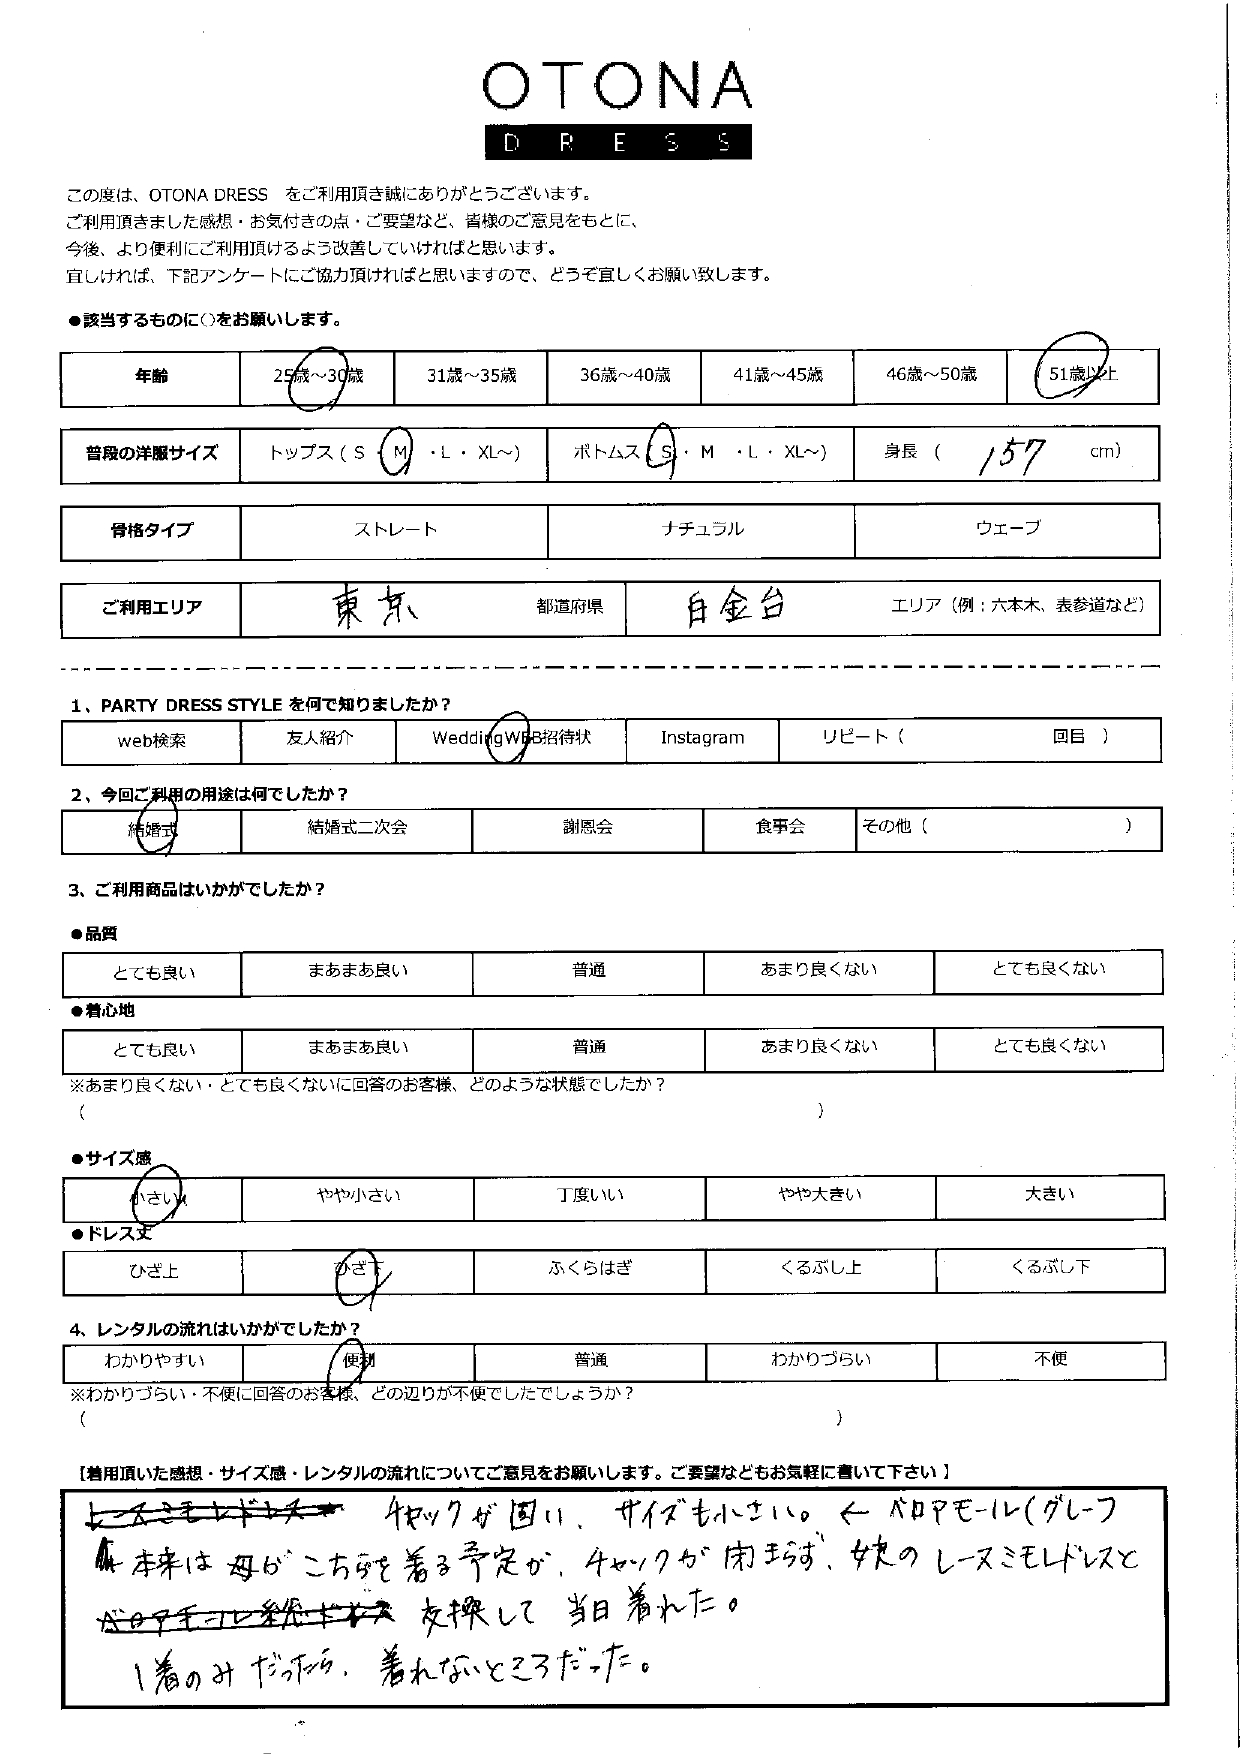 OTONA
DRESS
この度は、OTONA DRESS をご利用頂き誠にありがとうございます。
ご利用頂きました感想・お気付きの点・ご要望など、皆様のご意見をもとに、
今後、より便利にご利用頂けるよう改善していければと思います。
宜しければ、下記アンケートにご協力頂ければと思いますので、どうぞ宜しくお願い致します。
●該当するものに○をお願いします。
年齢 25歳～30歳 31歳～35歳 36歳～40歳 41歳～45歳 46歳～50歳 51歳以上
普段の洋服サイズ トップス ( S ・ M ・L ・ XL～) ボトムス ( S ・ M ・L ・ XL～) 身長 ( 157 cm)
骨格タイプ ストレート ナチュラル ウェーブ
ご利用エリア 東京 都道府県 白金台 エリア（例：六本木、表参道など）
1、PARTY DRESS STYLE を何で知りましたか？
web検索 友人紹介 WeddingWEB招待状 Instagram リピート（ 回目 ）
2、今回ご利用の用途は何でしたか？
結婚式 結婚式二次会 謝恩会 食事会 その他（ ）
3、ご利用商品はいかがでしたか？
●品質
とても良い まあまあ良い 普通 あまり良くない とても良くない
●着心地
とても良い まあまあ良い 普通 あまり良くない とても良くない
※あまり良くない・とても良くないに回答のお客様、どのような状態でしたか？
( )
●サイズ感
小さい やや小さい 丁度いい やや大きい 大きい
●ドレス丈
ひざ上 ひざ下 ふくらはぎ くるぶし上 くるぶし下
4、レンタルの流れはいかがでしたか？
わかりやすい 便利 普通 わかりづらい 不便
※わかりづらい・不便に回答のお客様、どの辺りが不便でしたでしょうか？
( )
【着用頂いた感想・サイズ感・レンタルの流れについてご意見をお願いします。ご要望などもお気軽に書いて下さい】
レースミモレドレス チャックが固い、サイズも小さい。← ベロアモール(グレーフ
本来は母がこちらを着る予定が、チャックが閉まらず、娘のレースミモレドレスと
交換して当日着れた。
1着のみだったら、着れないところだった。